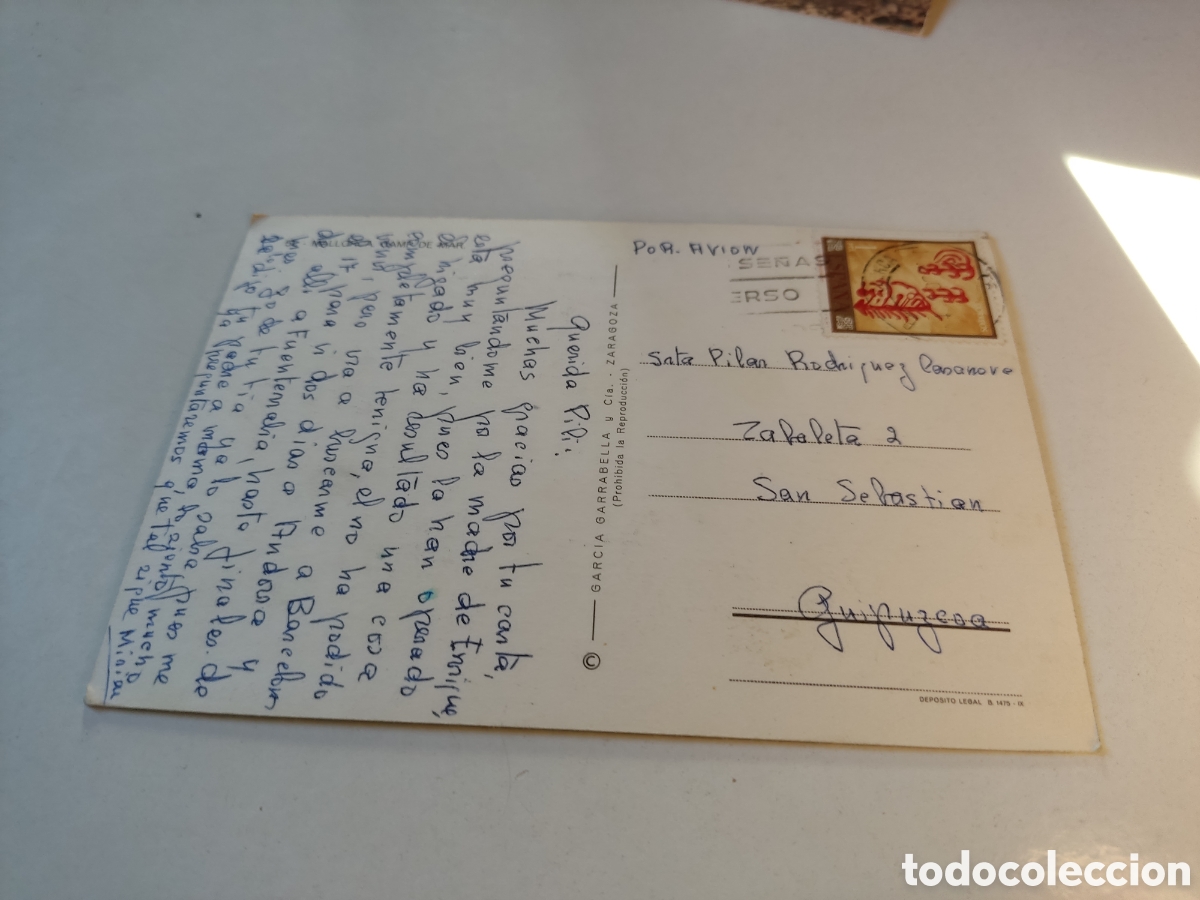 MALLORCA CAMP DE MAR
Querida Pili:
Muchas gracias por tu carta,
preguntandome por la madre de Enrique,
está muy bien, pues la han operado
de higado y ha resultado una cosa
completamente benigna, el no ha podido
venir, pero va a buscarme a Barcelona
el 17 para ir dos dias a Andorra y
de alli a Fuenterrabia, hasta finales de
mes, lo de tu tia ya lo sabia, pues me
dijo tu padre a mamá, lo mucho
preguntaremos que tal sigue
© GARCIA GARRABELLA y Cía. - ZARAGOZA
(Prohibida la Reproducción)
POR AVION
SEÑAS
ERSO
Srta Pilar Rodriguez Casanove
Zabaleta 2
San Sebastian
Guipuzcoa
DEPOSITO LEGAL B. 1475 - IX
todocoleccion